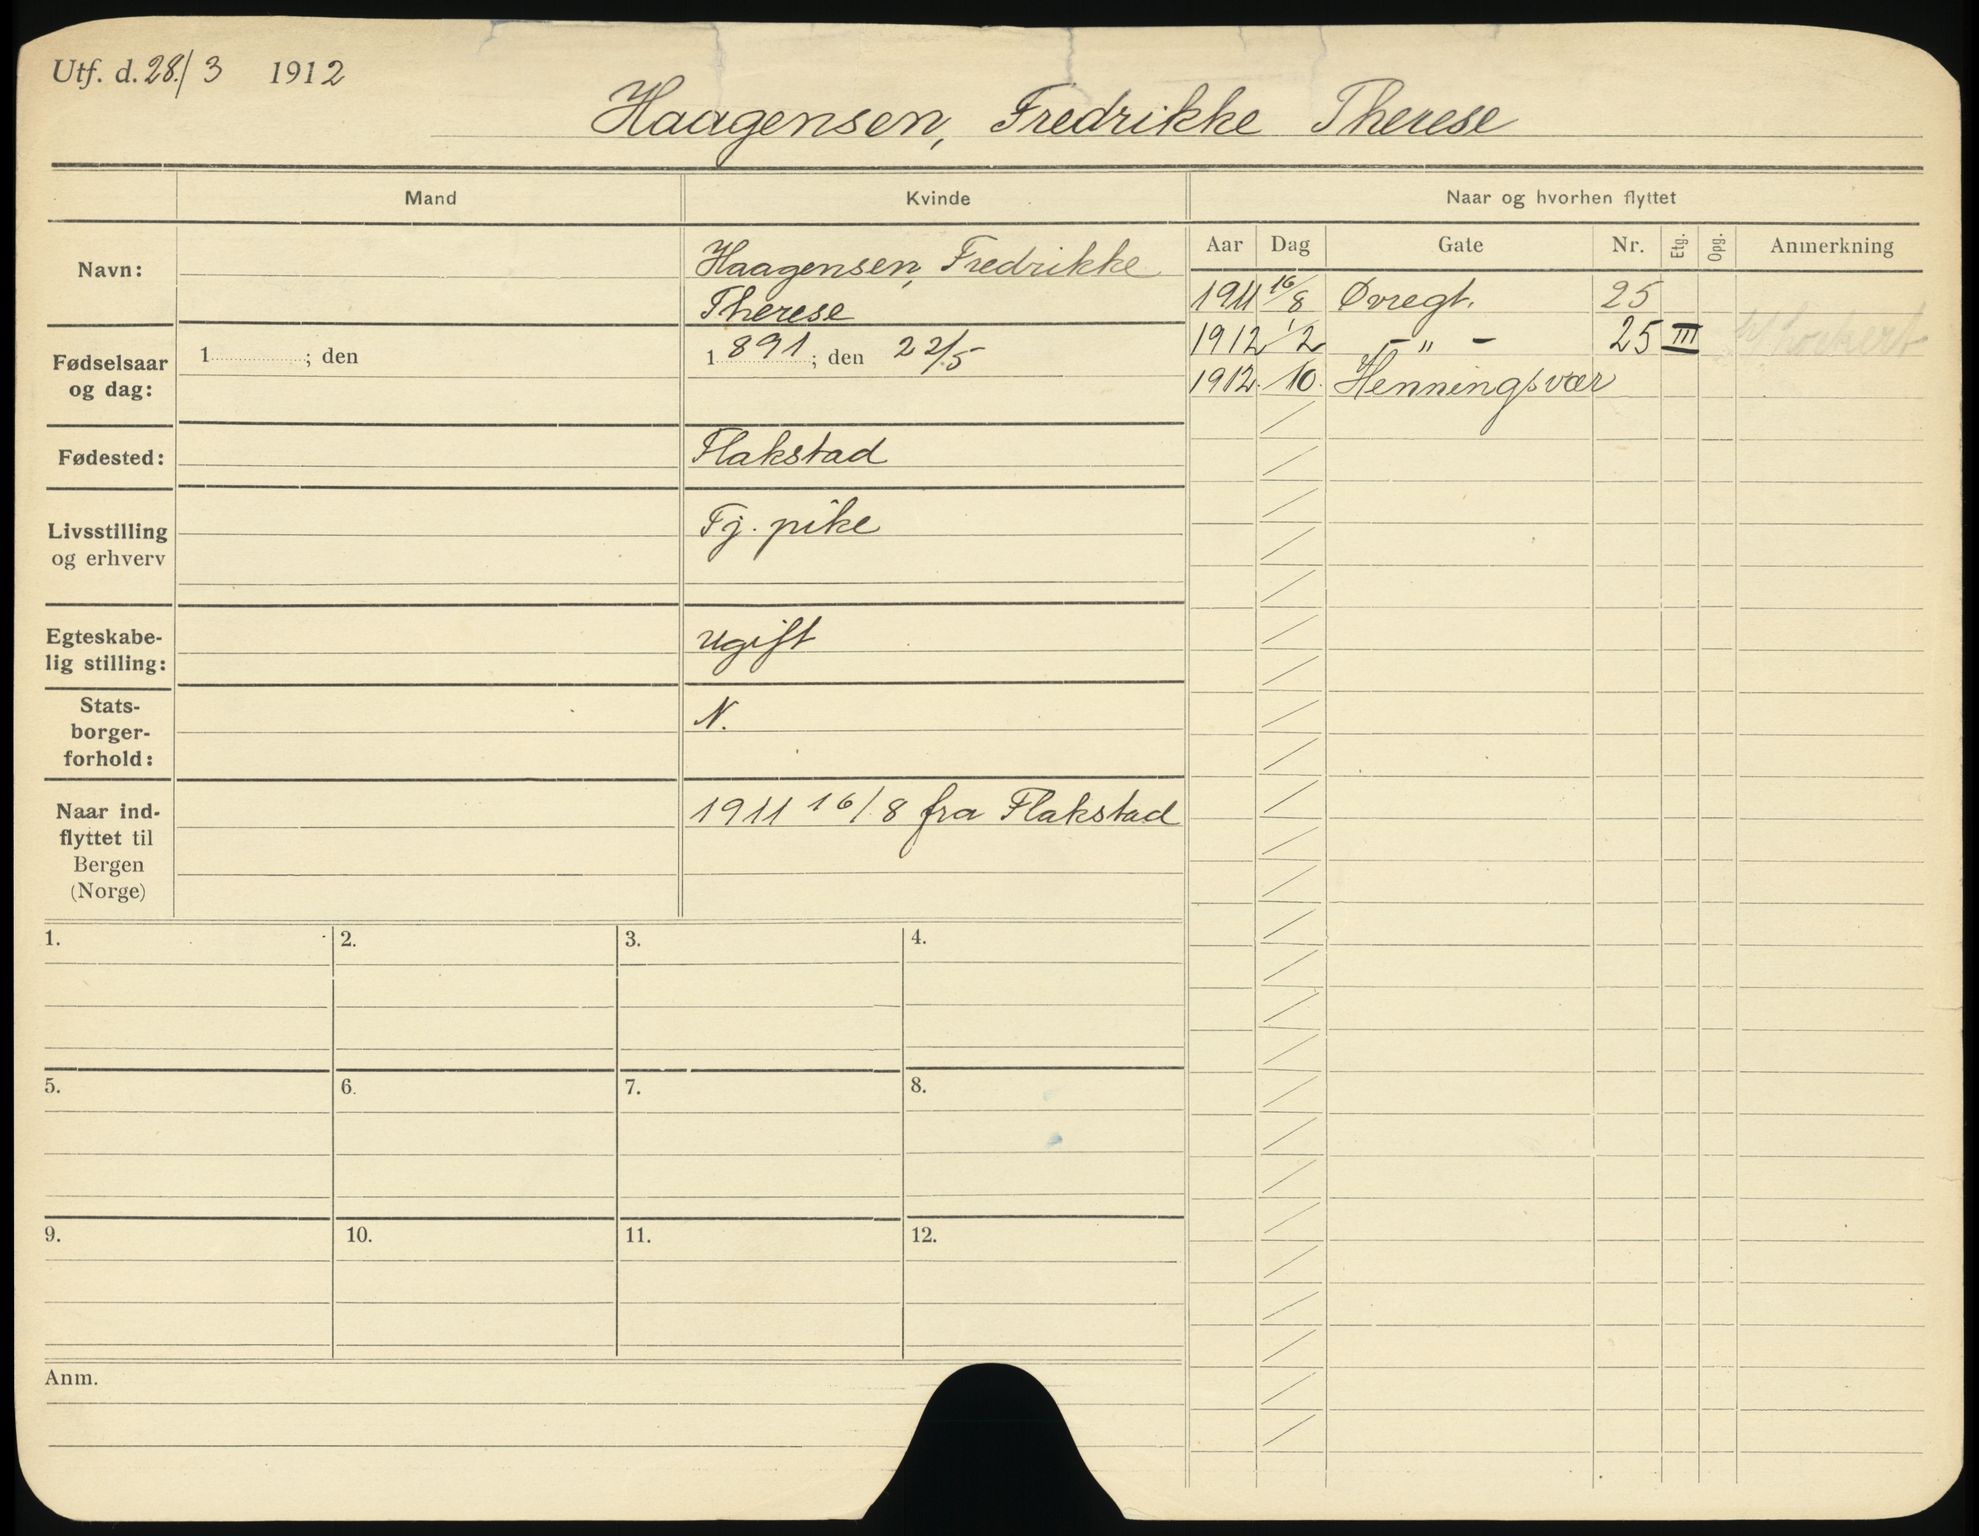 Utf. d. 28./3 1912
Haagensen, Fredrikke Therese
Mand
Kvinde
Naar og hvorhen flyttet
Navn:
Haagensen, Fredrikke
Therese
Fødselsaar
og dag:
1 ; den
1 891 ; den 22/5
Fødested:
Flakstad
Livsstilling
og erhverv
Tj. pike
Egteskabe-
lig stilling:
ugift
Stats-
borger-
forhold:
N.
Naar ind-
flyttet til
Bergen
(Norge)
1911 16/8 fra Flakstad
Aar Dag Gate Nr. Etg. Opg. Anmerkning
1911 16/8 Øvregt. 25
1912 1/2 - " - 25 III
1912. /10. Henningsvær
1. 2. 3. 4.
5. 6. 7. 8.
9. 10. 11. 12.
Anm.